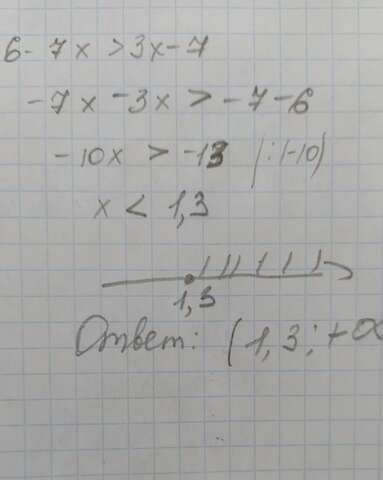 6 - 7x > 3x - 7
-7x - 3x > -7 - 6
-10x > -13 |:(-10)
x < 1,3
1,3
Ответ: (1,3; +∞